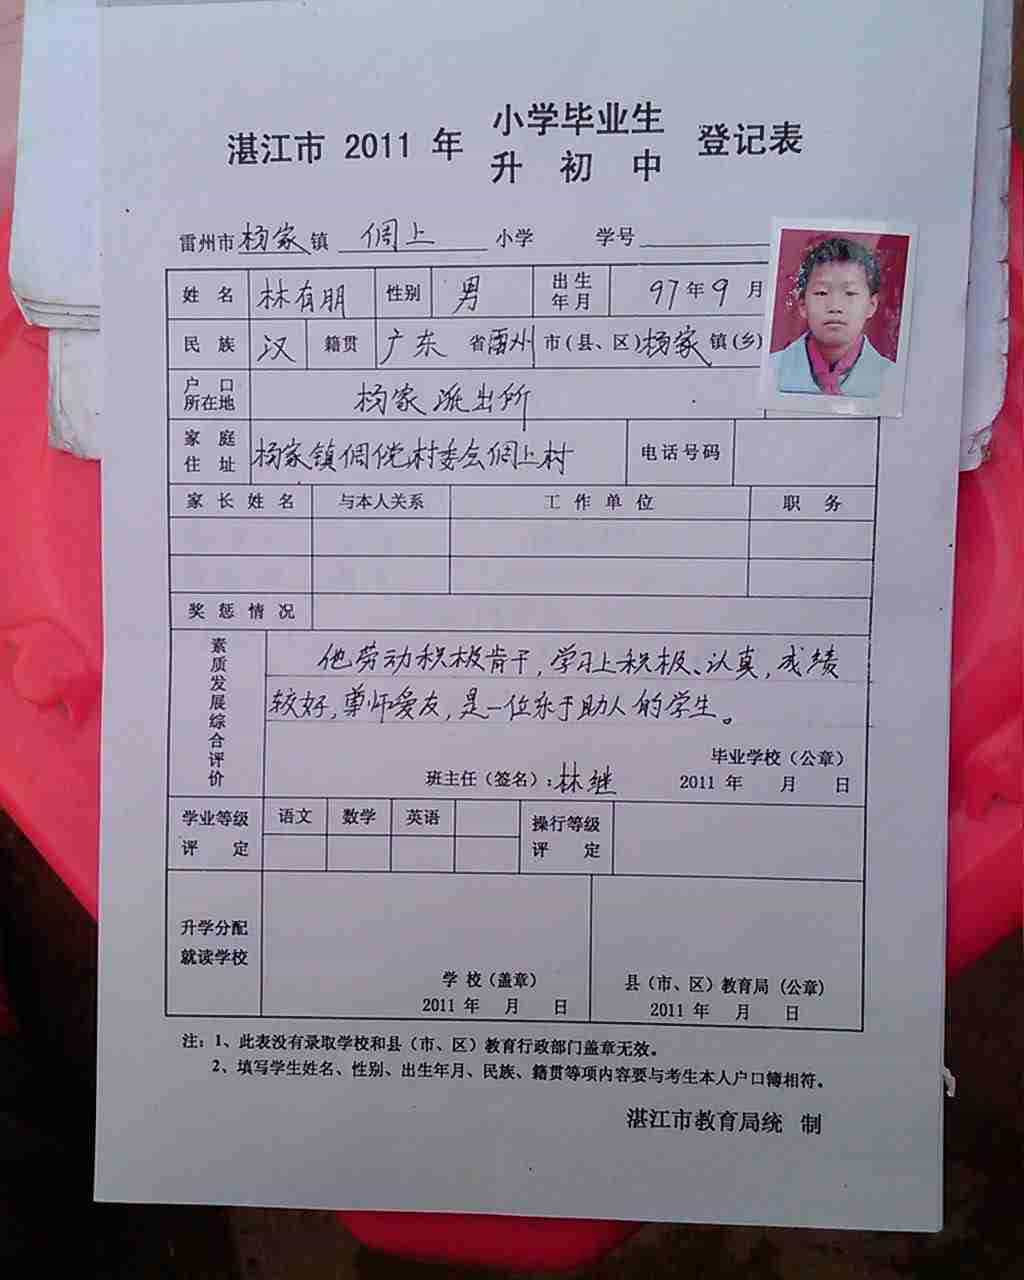 小学毕业生
湛江市 2011 年 登记表
升 初 中
雷州市 杨家 镇 倜上 小学 学号
姓 名 林有朋 性别 男 出生年月 97 年 9 月
民 族 汉 籍贯 广东 省 雷州 市(县、区) 杨家 镇(乡)
户 口 所在地 杨家派出所
家 庭 住 址 杨家镇倜侥村委会倜上村 电话号码
家 长 姓 名 与本人关系 工 作 单 位 职 务
奖 惩 情 况
素质发展综合评价
他劳动积极肯干,学习上积极、认真,成绩
较好,尊师爱友,是一位乐于助人的学生。
毕业学校(公章)
班主任(签名):林继 2011 年 月 日
学业等级 评 定 语文 数学 英语 操行等级 评 定
升学分配
就读学校
学 校(盖章) 县(市、区)教育局(公章)
2011 年 月 日 2011 年 月 日
注:1、此表没有录取学校和县(市、区)教育行政部门盖章无效。
2、填写学生姓名、性别、出生年月、民族、籍贯等项内容要与考生本人户口簿相符。
湛江市教育局统 制